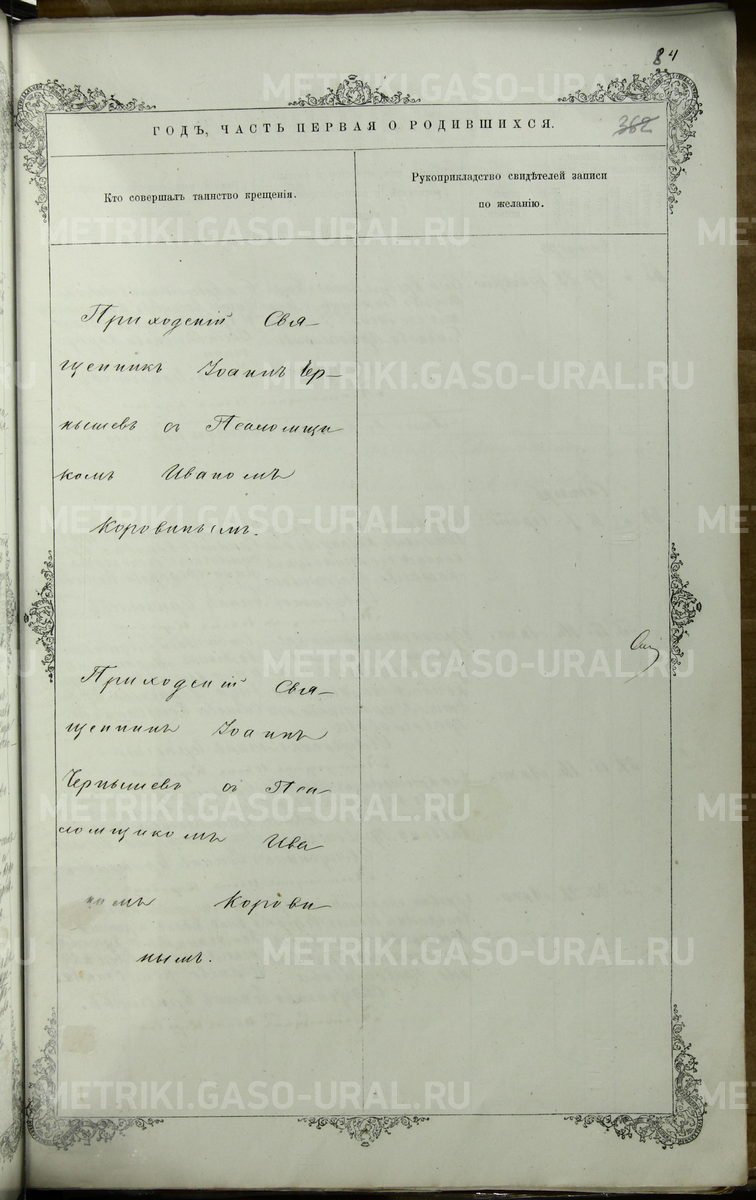 84
ГОДЪ, ЧАСТЬ ПЕРВАЯ О РОДИВШИХСЯ.
362
Кто совершалъ таинство крещенія.
Рукоприкладство свидѣтелей записи
по желанію.
Приходскій Свя-
щенникъ Іоаннъ Чер-
нышевъ съ Псаломщи
комъ Иваномъ
Коровинымъ.
Приходскій Свя-
щенникъ Іоаннъ
Чернышевъ съ Пса
ломщикомъ Ива
номъ Корови
нымъ.
METRIKI.GASO-URAL.RU